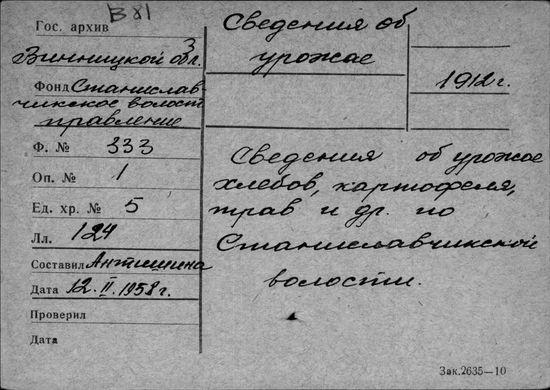 В 81
Гос. архив
Винницкой обл.
Фонд Станислав-
чикское волостн
правление
Ф. № 333
Оп. № 1
Ед. хр. № 5
Лл. 124
Составил Антипина
Дата 12.II.1958 г.
Проверил
Дата
Сведения об
урожае
1912 г.
Сведения об урожае
хлебов, картофеля,
трав и др. по
Станиславчикской
волости.
Зак. 2635—10